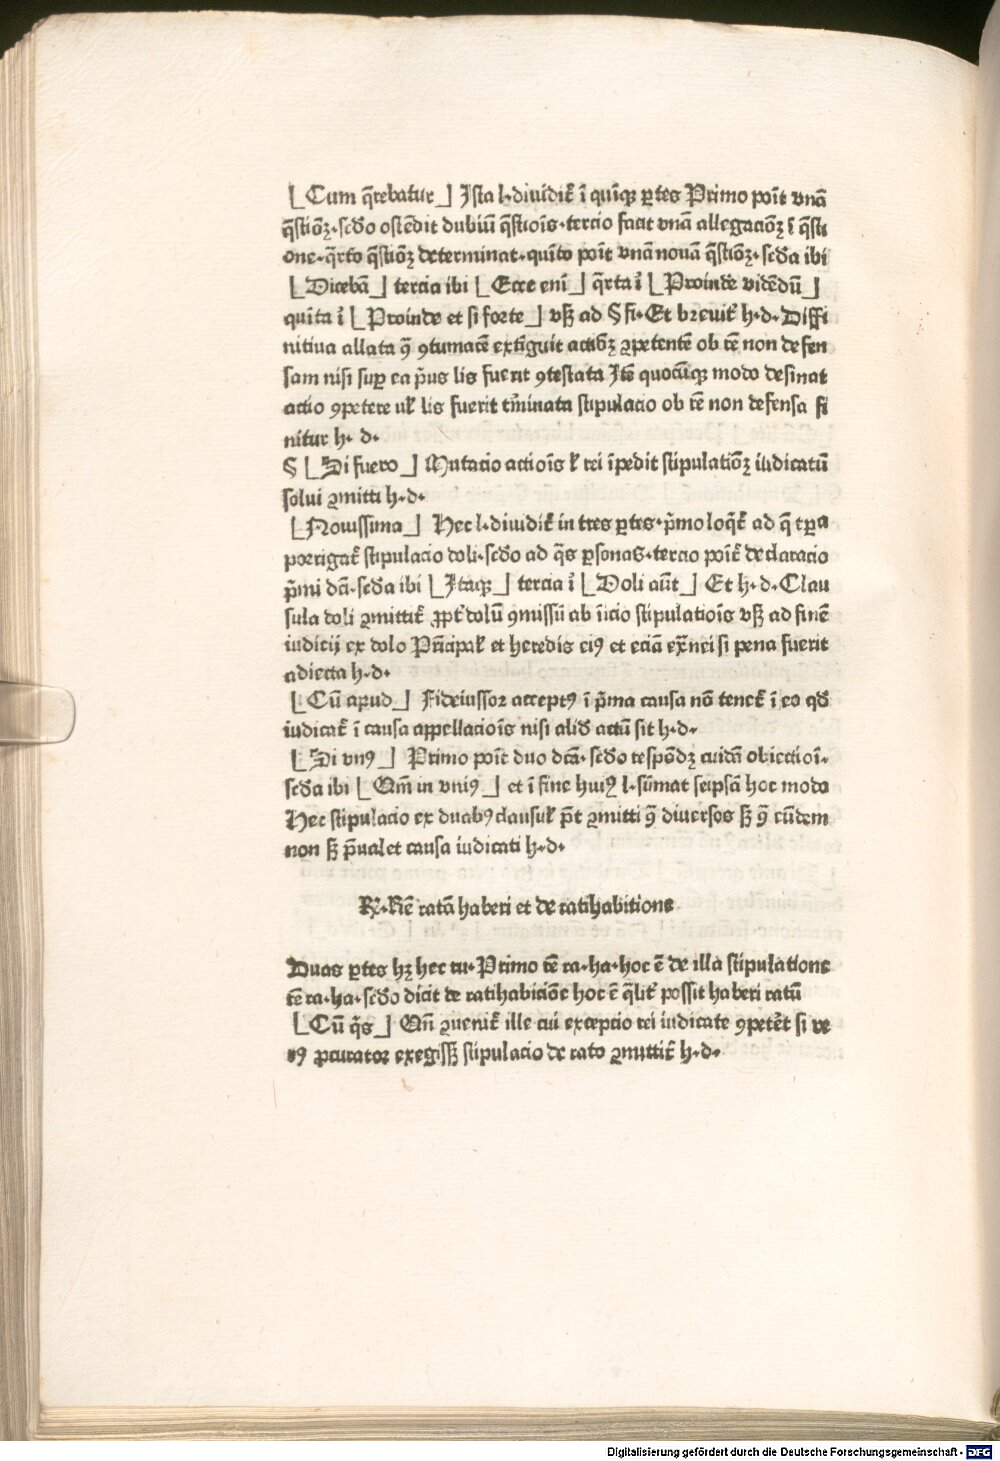 ⌊Cum q̄rebatur⌋ Ista l·diuidit᷑ ī quiq̄ꝫ ꝑtes Primo poīt vnā
q̄stiōꝫ·scd̕o ostēdit dubiū q̄stiōis·tercio facit vnā allegaciōꝫ ī q̄sti
one·q̄rto q̄stiōꝫ determinat·quīto poīt vnā nouā q̄stiōꝫ·scd̕a ibi
⌊Dicebā⌋ tercia ibi ⌊Ecce enī⌋ q̄rta ī ⌊Proinde vidēdū⌋
quīta ī ⌊Proinde et si forte⌋ vsqꝫ ad § fi·Et breuit᷑ h·d·Diffi
nitiua allata ꝯ̄ ꝯtumacē extīguit actiōꝫ ꝯpetentē ob rē non defen
sam nisi suꝑ ea p̄us lis fuerit ꝯtestata Itē quocūqꝫ modo desinat
actio ꝯpetere ul̕ lis fuerit t᷑minata stipulacio ob rē non defensa fi
nitur h·d·
§ ⌊Si fuero⌋ Mutacio actiōis l̕ rei īpedit stipulatiōꝫ iudicatū
solui ꝯmitti h·d·
⌊Nouissima⌋ Hec l·diuidit᷑ in tres ꝑtes·p̄mo loq̄t᷑ ad q̄ tꝑa
porrigat᷑ stipulacio doli·scd̕o ad q̄s ꝑsonas·tercio poīt᷑ declaracio
p̄mi dc̄i·scd̕a ibi ⌊Itaqꝫ⌋ tercia ī ⌊Doli aūt⌋ Et h·d·Clau
sula doli ꝯmittit᷑ ꝓpt᷑ dolū ꝯmissū ab īicio stipulatiōis vsqꝫ ad finē
iudicij ex dolo Pr̄icipal̕ et heredis eiꝰ et eciā ex̄nei si pena fuerit
adiecta h·d·
⌊Cū apud⌋ Fideiussor acceptꝰ ī p̄ma causa nō tenet᷑ ī eo qd̕
iudicat᷑ ī causa appellaciōis nisi aliđ actū sit h·d·
⌊Si vnꝰ⌋ Primo poīt duo dc̄a·scd̕o respōdꝫ cuidā obiectioī·
scd̕a ibi ⌊Qm̄ in vniꝰ⌋ et ī fine huiꝰ l·sūmat seipsā hoc modo
Hec stipulacio ex duabꝰ clausul̕ p̄t ꝯmitti ꝯ̄ diuersos sꝫ ꝯ̄ eūdem
non sꝫ p̄ualet causa iudicati h·d·
R᷑·Rē ratā haberi et de ratihabitione
Duas ꝑtes hꝫ hec tu·Primo rē ra·ha·hoc ē de illa stipulatione
rē ra·ha·scd̕o dicit de ratihabiciōe hoc ē q̄lit᷑ possit haberi ratū
⌊Cū q̄s⌋ Qn̄ ꝯuenit᷑ ille cui exceptio rei iudicate ꝯpetēt si ve
rꝰ ꝓcurator exegissꝫ stipulacio de rato ꝯmittit᷑ h·d·
Digitalisierung gefördert durch die Deutsche Forschungsgemeinschaft - DFG